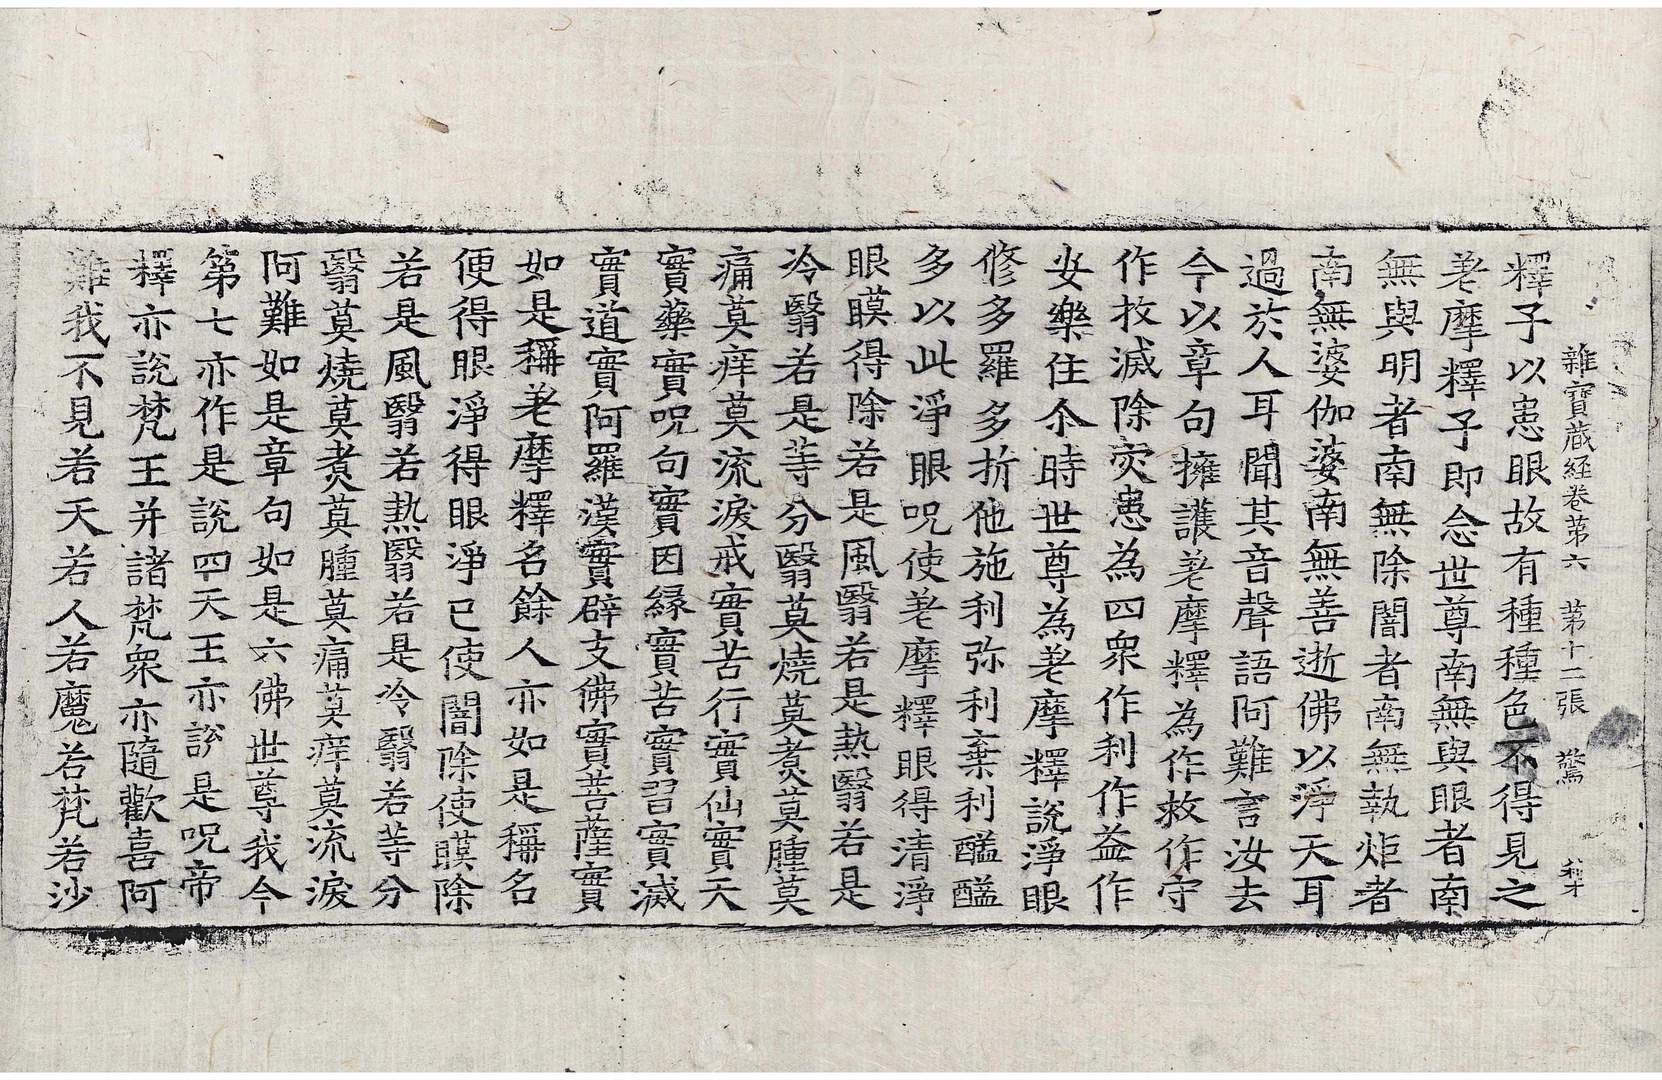 雜寶藏経卷苐六 苐十二張 驚
釋子以患眼故有種種色不得見之
差摩釋子即念世尊南無與眼者南
無與明者南無除闇者南無執炬者
南無婆伽婆南無善逝佛以淨天耳
過於人耳聞其音聲語阿難言汝去
今以章句擁護差摩釋為作救作守
作救滅除灾患為四衆作利作益作
安樂住尒時世尊為差摩釋說淨眼
修多羅多折他施利弥利棄利醯醯
多以此淨眼呪使差摩釋眼得清淨
眼瞙得除若是風翳若是熱翳若是
冷翳若是等分翳莫燒莫煮莫腫莫
痛莫痒莫流淚戒實苦行實仙實天
實藥實呪句實因縁實苦實習實滅
實道實阿羅漢實辟支佛實菩薩實
如是稱差摩釋名餘人亦如是稱名
便得眼淨得眼淨已使闇除使瞙除
若是風翳若熱翳若是冷翳若等分
翳莫燒莫煮莫腫莫痛莫痒莫流淚
阿難如是章句如是六佛世尊我今
第七亦作是說四天王亦說是呪帝
釋亦說梵王并諸梵衆亦隨歡喜阿
難我不見若天若人若魔若梵若沙